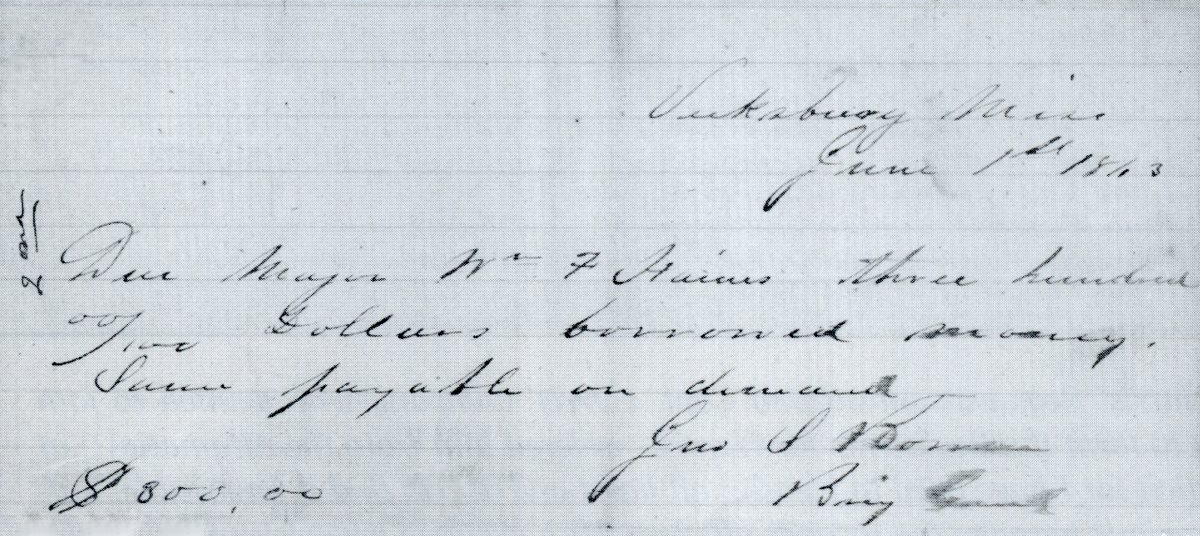 Vicksburg Miss
June 1st 1863
Due Major Wm F Haines three hundred
00/100 Dollars borrowed money.
Same payable on demand
Jno S Bowen
$300.00 Brig Genl